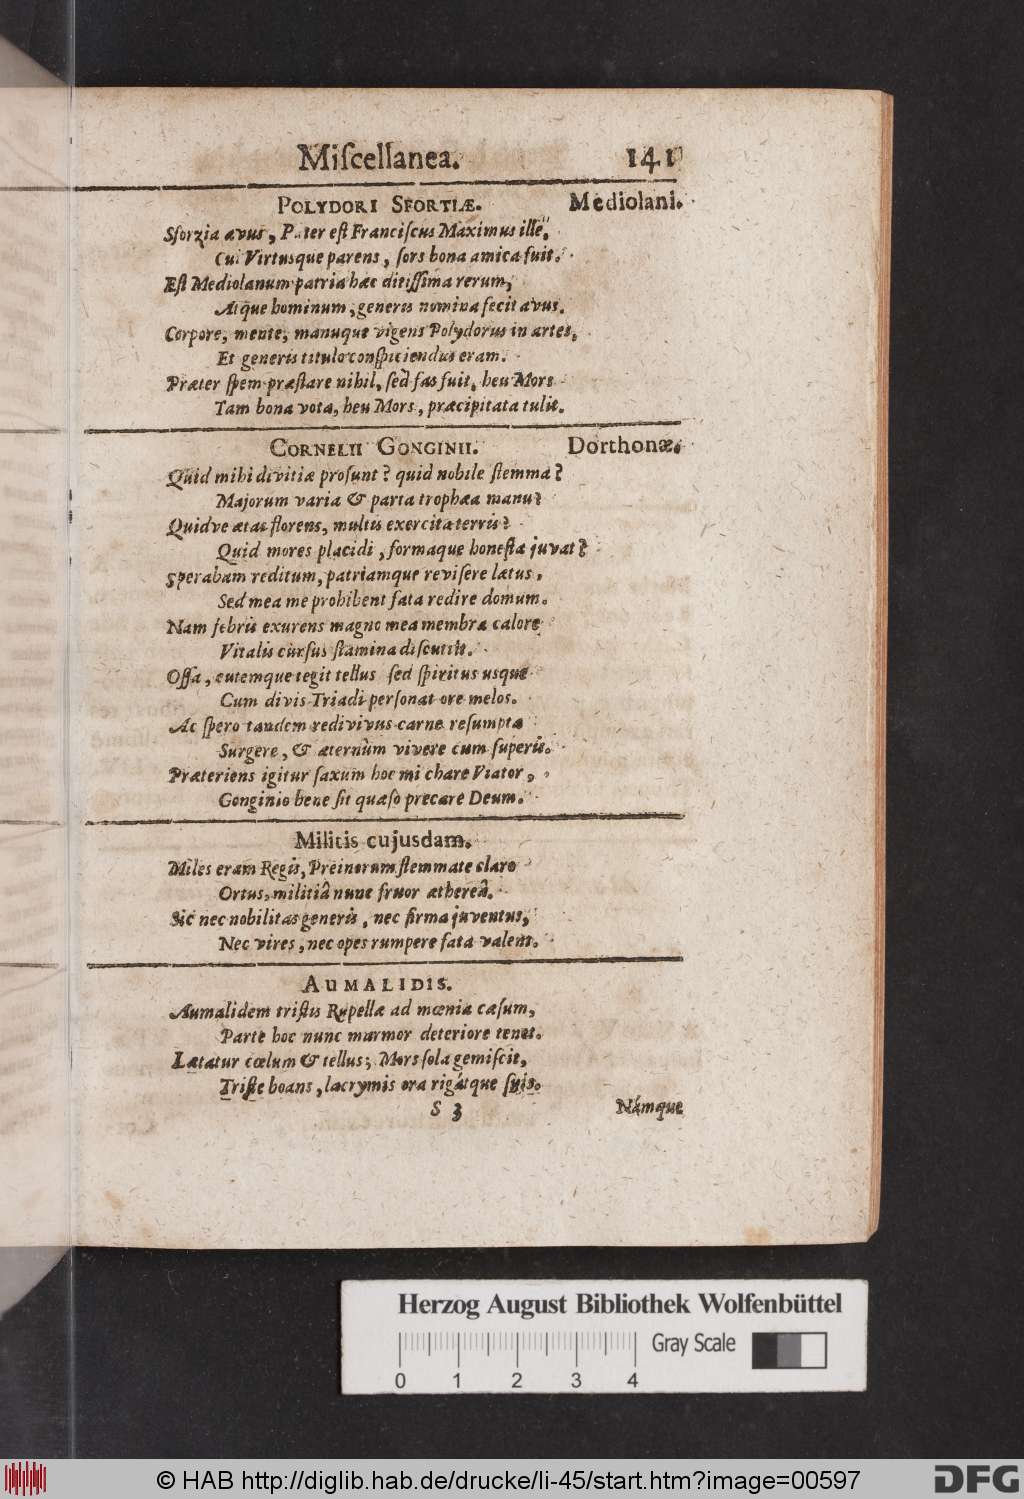 Miſcellanea. 141
POLYDORI SFORTIÆ. Mediolani.
Sforzia avus, Pater eſt Franciſcus Maximus ille,
Cui Virtusque parens, ſors bona amica fuit.
Eſt Mediolanum patria hæc ditiſſima rerum,
Atque hominum, generis nomina fecit avus.
Corpore, mente, manuque vigens Polydorus in artes,
Et generis titulo conſpiciendus eram.
Præter ſpem præſtare nihil, ſed fas fuit, heu Mors
Tam bona vota, heu Mors, præcipitata tulit.
CORNELII GONGINII. Dorthonæ.
Quid mihi divitiæ proſunt? quid nobile ſtemma?
Majorum varia & parta trophæa manu?
Quidve ætas florens, multis exercita terris?
Quid mores placidi, formaque honeſta juvat?
Sperabam reditum, patriamque reviſere lætus,
Sed mea me prohibent fata redire domum.
Nam febris exurens magno mea membra calore
Vitalis curſus ſtamina diſcutit.
Oſſa, cutemque tegit tellus ſed ſpiritus usque
Cum divis Triadi perſonat ore melos.
Ac ſpero tandem redivivus carne reſumpta
Surgere, & æternùm vivere cum ſuperis.
Præteriens igitur ſaxum hoc mi chare Viator,
Gonginio bene ſit quæſo precare Deum.
Militis cujusdam.
Miles eram Regis, Preinorum ſtemmate claro
Ortus, militiâ nunc fruor æthereâ.
Sic nec nobilitas generis, nec firma juventus,
Nec vires, nec opes rumpere fata valent.
AUMALIDIS.
Aumalidem triſtis Rupellæ ad mœnia cæſum,
Parte hoc nunc marmor deteriore tenet.
Lætatur cœlum & tellus; Mors ſola gemiſcit,
Triſte boans, lacrymis ora rigátque ſuis.
S 3 Námque
Herzog August Bibliothek Wolfenbüttel
Gray Scale
0 1 2 3 4
© HAB http://diglib.hab.de/drucke/li-45/start.htm?image=00597
DFG